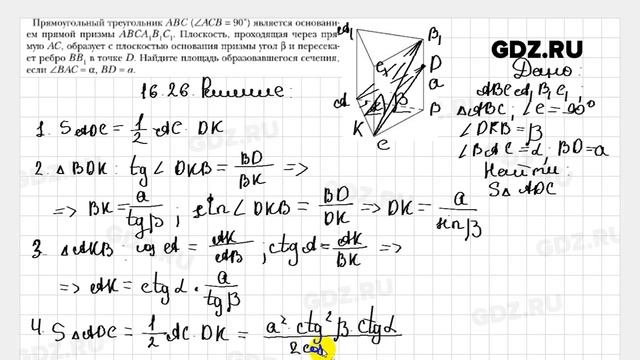 Прямоугольный треугольник ABC (∠ACB = 90°) является основани-
ем прямой призмы ABCA₁B₁C₁. Плоскость, проходящая через пря-
мую AC, образует с плоскостью основания призмы угол β и пересека-
ет ребро BB₁ в точке D. Найдите площадь образовавшегося сечения,
если ∠BAC = α, BD = a.
GDZ.RU
Дано:
ABCA₁B₁C₁
△ABC, ∠C = 90°
∠DKB = β
∠BAC = α, BD = a
Найти:
S△ADC
A₁
B₁
C₁
D
a
A
β
B
K
C
16.26. Решение:
1. S△ADC = 1/2 AC · DK
2. △BDK: tg∠DKB = BD/BK =>
=> BK = a/tgβ ; sin∠DKB = BD/DK => DK = a/sinβ
3. △AKB: cos A = AK/AB ; ctg A = AK/BK =>
=> AK = ctgα · a/tgβ
4. S△ADC = 1/2 AC · DK = a² · ctg²β · ctgα / 2cos
GDZ.RU